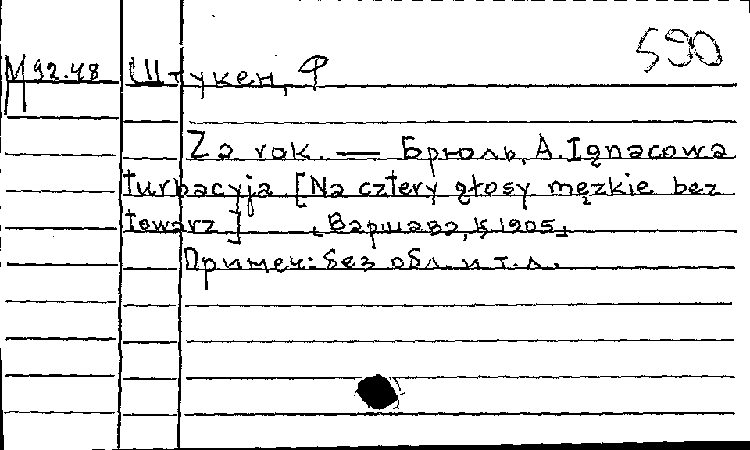 590
М 92.48 Штукен, Ф
Za rok. — Брюль, А. Ignacowa
turbacyja [Na cztery głosy męzkie bez
towarz] [Варшава, Қ 1905]
Примеч: без обл. и т.л.